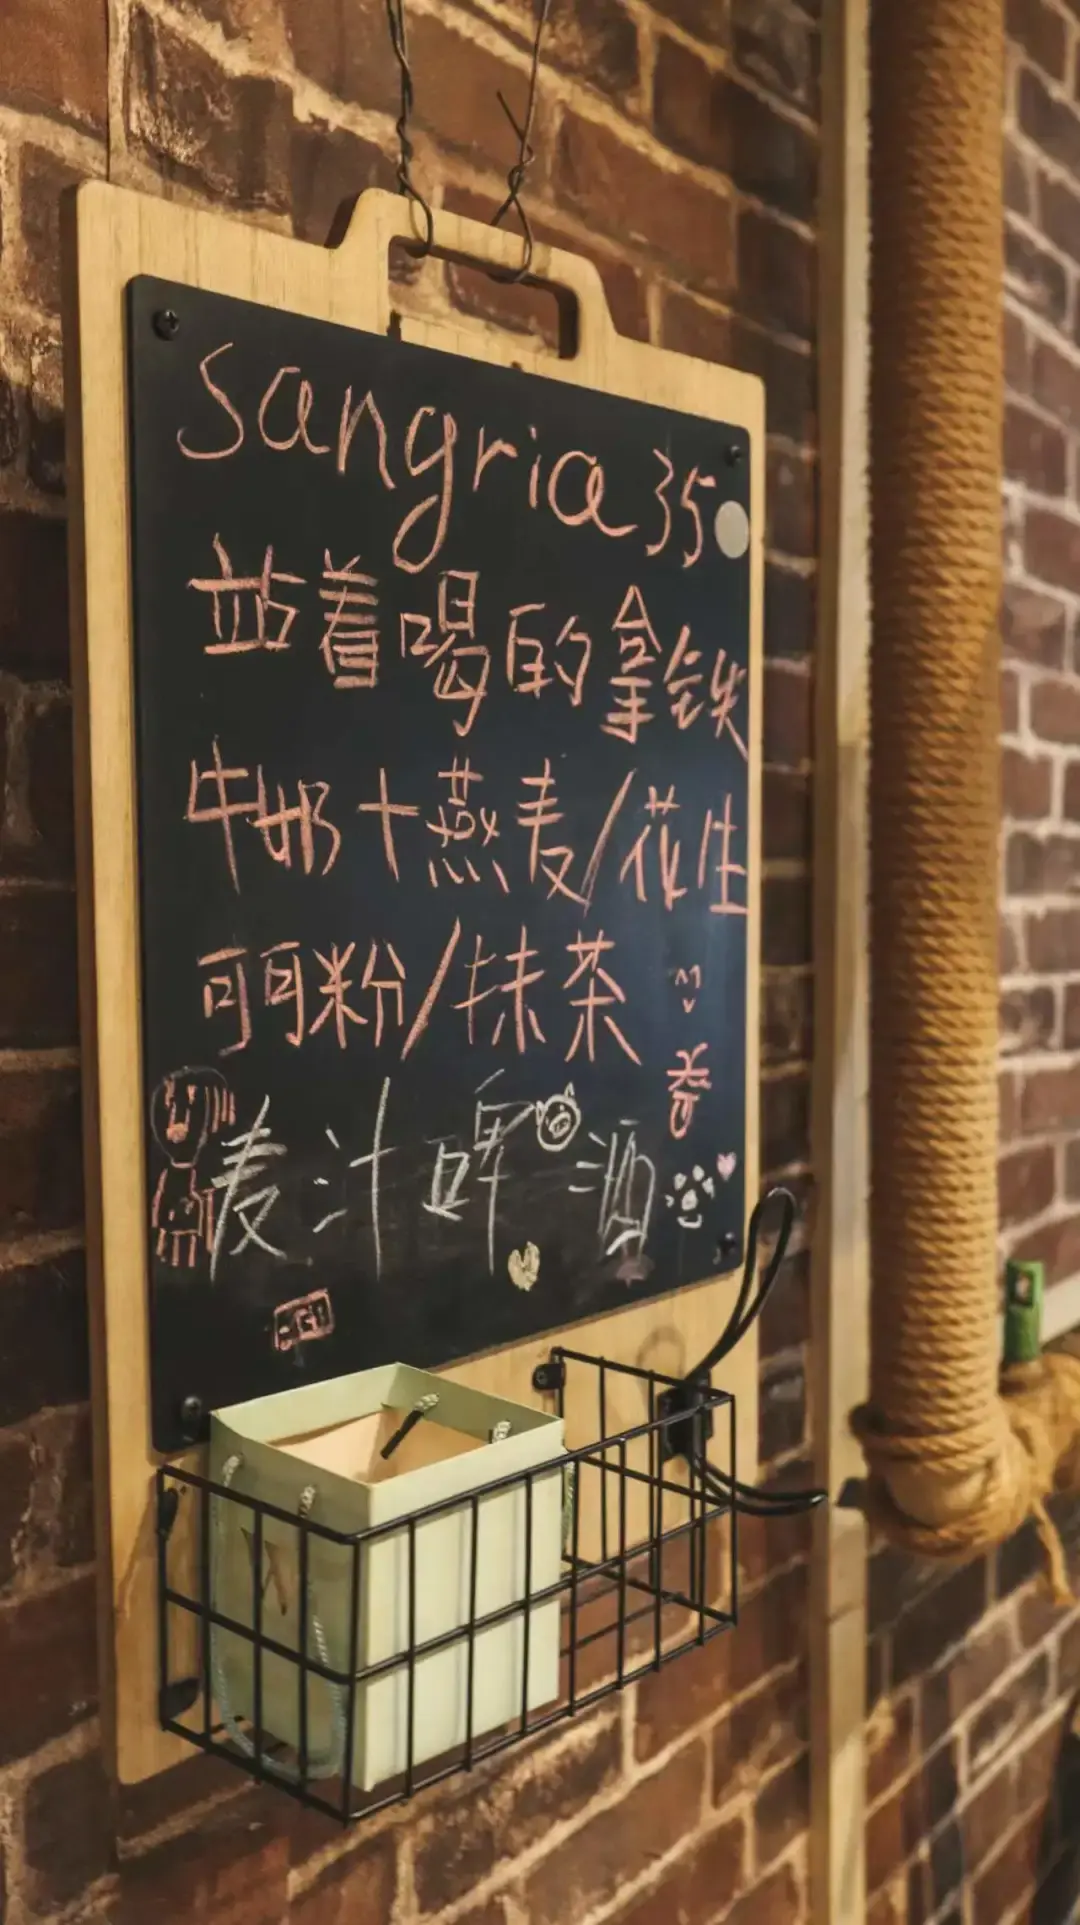 sangria 35
站着喝的拿铁
牛奶+燕麦/花生
可可粉/抹茶
麦汁啤酒